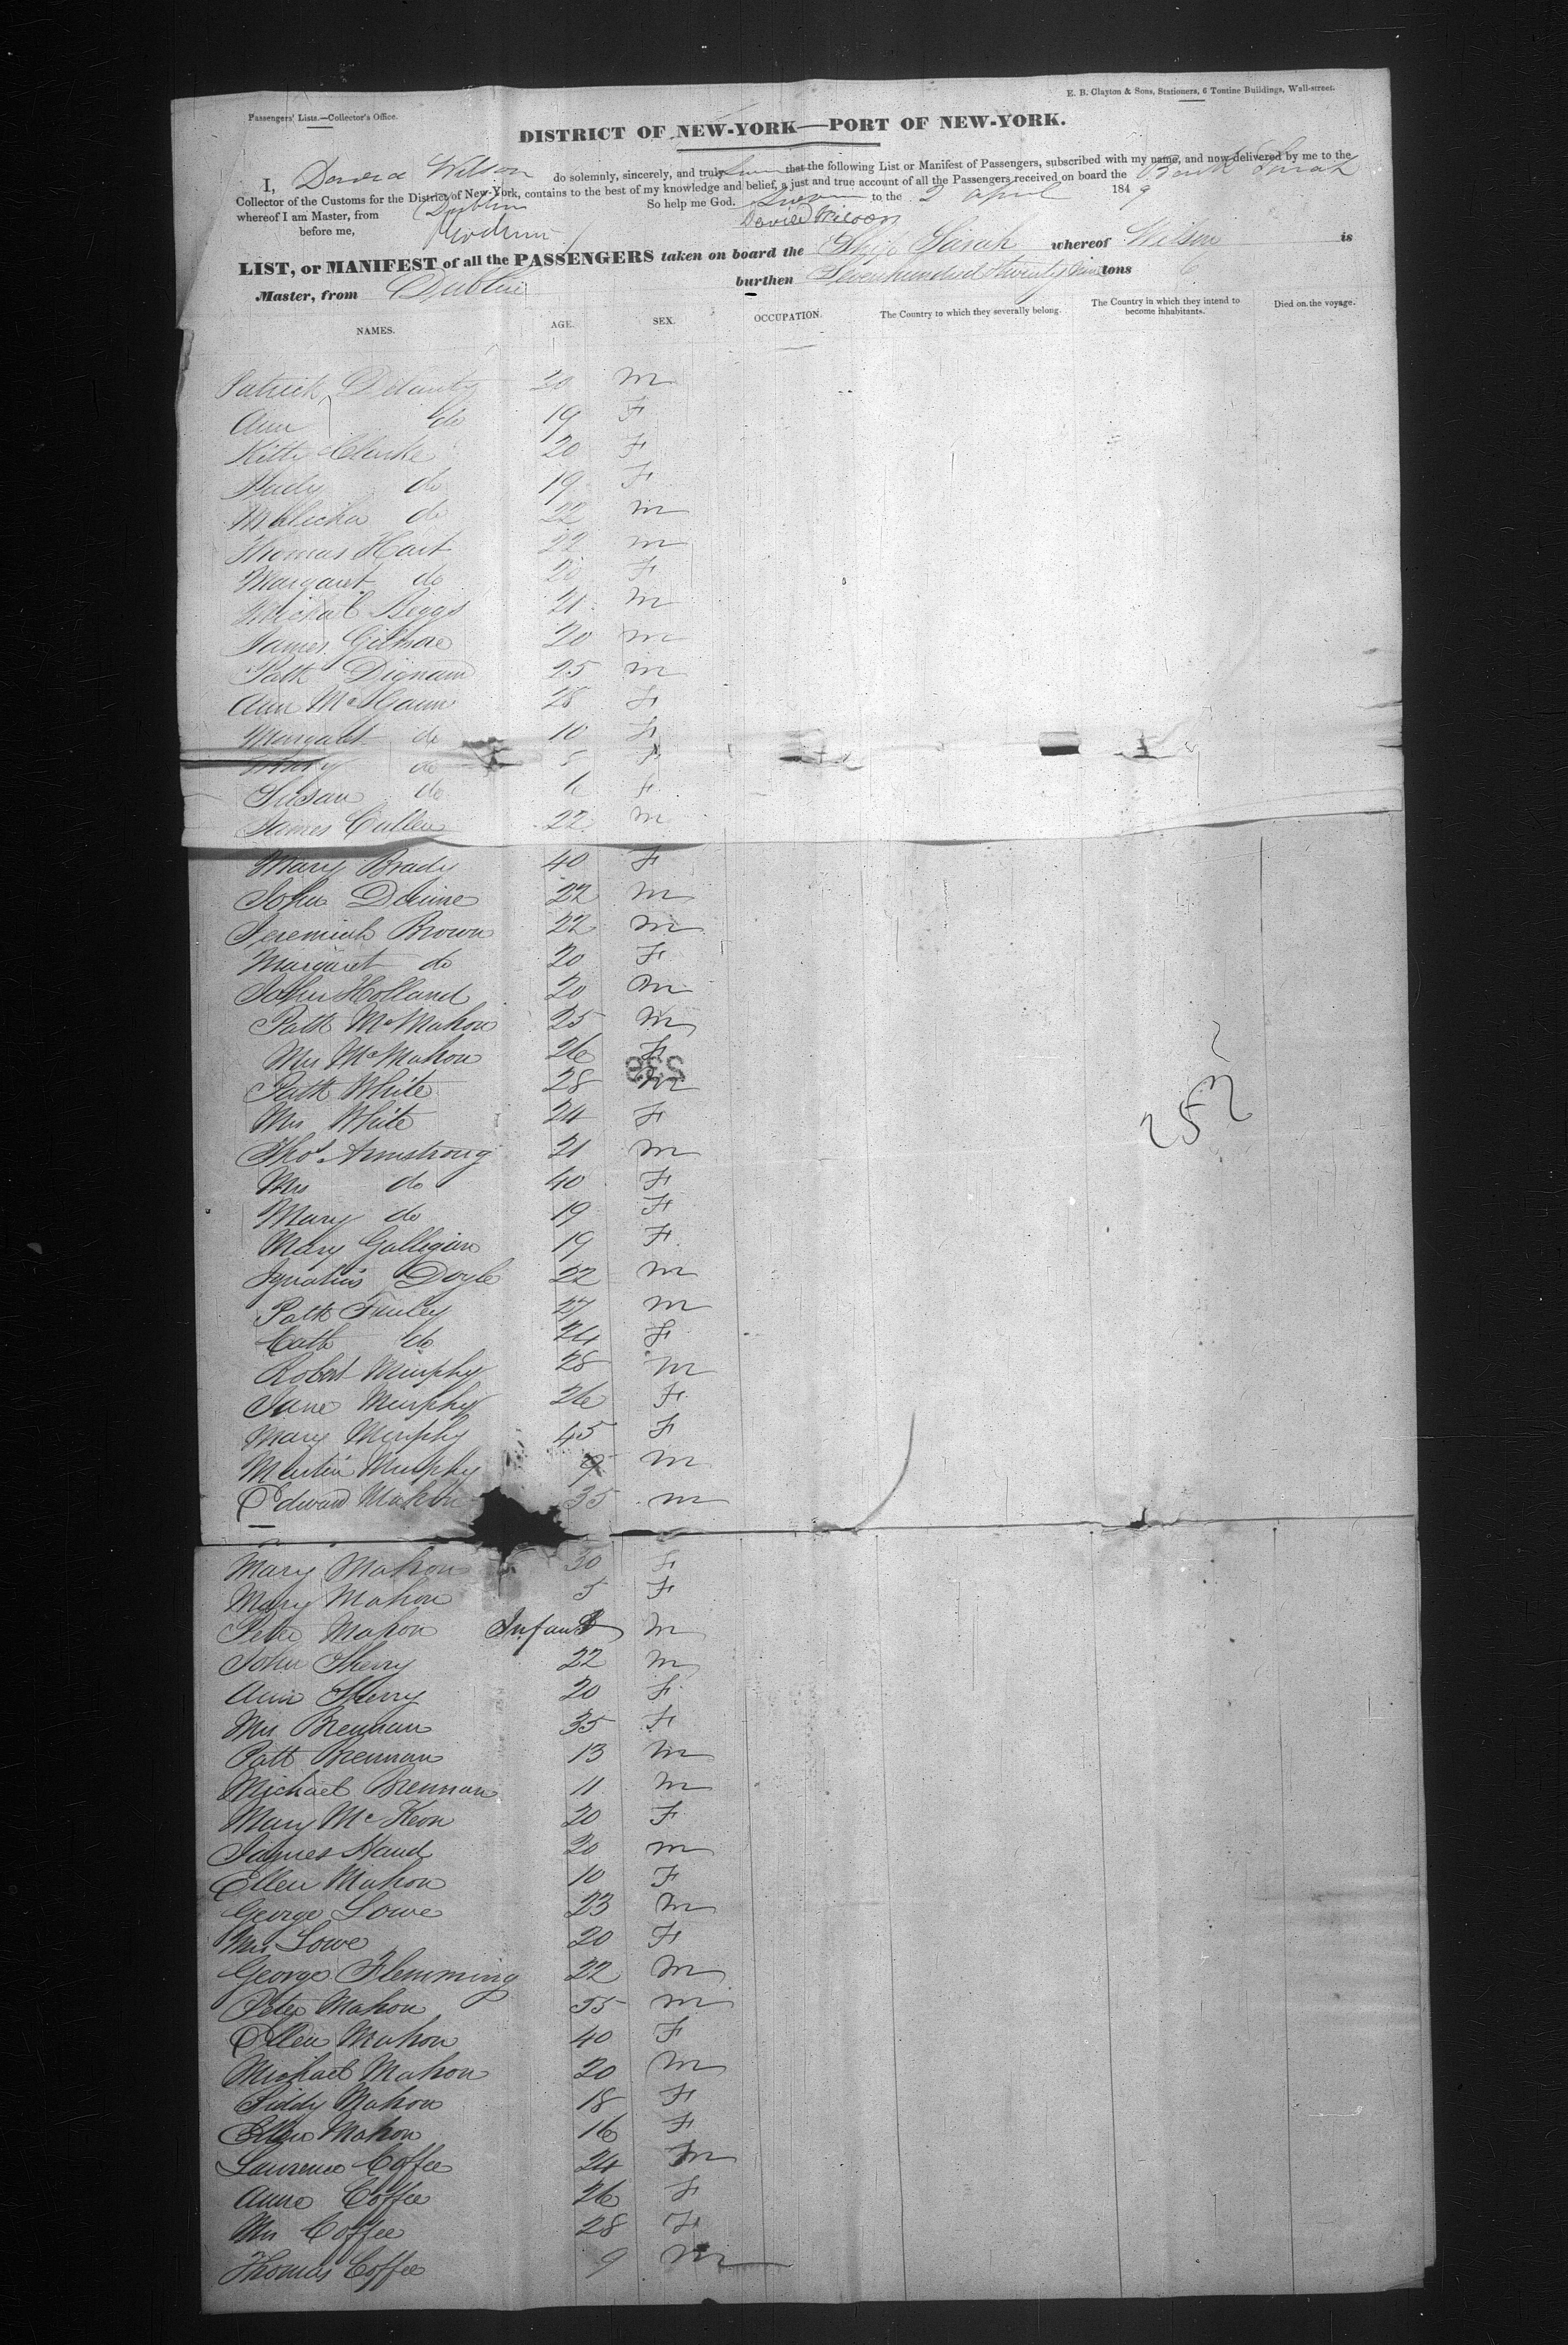 Passengers' Lists.—Collector's Office.
E. B. Clayton & Sons, Stationers, 6 Tontine Buildings, Wall-street.
DISTRICT OF NEW-YORK—PORT OF NEW-YORK.
I, David Wilson do solemnly, sincerely, and truly swear that the following List or Manifest of Passengers, subscribed with my name, and now delivered by me to the
Collector of the Customs for the District of New-York, contains to the best of my knowledge and belief, a just and true account of all the Passengers received on board the Bark Sarah
whereof I am Master, from Dublin So help me God.
Sworn to the 2 april 1849
before me, David Wilson
LIST, or MANIFEST of all the PASSENGERS taken on board the Ship Sarah whereof Wilson is
Master, from Dublin burthen Seven hundred & twenty nine tons
NAMES. AGE. SEX. OCCUPATION. The Country to which they severally belong. The Country in which they intend to become inhabitants. Died on the voyage.
Patrick Delanty 20 m
Ann do 19 F
Kitty Clarke 20 F
Judy do 19 F
do 22 m
Thomas Hart 22 m
Margaret do 20 F
Michal Beggs 21 m
James Gilmore 20 m
Patk Dignam 25 m
Ann McGann 28 F
Margaret do 10 F
Mary do F
Susan do 6 F
James Cullen 22 m
Mary Brady 40 F
John Dunne 22 m
Jeremiah Brown 22 m
Margaret do 20 F
John Holland 20 m
Patk McMahon 25 m
Mrs McMahon 26 F
Patk White 28 m
Mrs White 24 F
Thos Armstrong 21 m
Mrs do 40 F
Mary do 19 F
Mary Galligan 19 F
Ignatius Doyle 22 m
Patk Finley 27 m
Cath do 24 F
Robert Murphy 28 m
Jane Murphy 26 F
Mary Murphy 45 F
Martin Murphy 9 m
Edward Mahon 35 m
Mary Mahon 30 F
Mary Mahon 5 F
Peter Mahon Infant m
John Sherry 22 m
Ann Sherry 20 F
Mrs Brennan 35 F
Patt Brennan 13 m
Michael Brennan 11 m
Mary McKeon 20 F
James Hand 20 m
Ellen Mahon 10 F
George Lowe 23 m
Mrs Lowe 20 F
George Flemming 22 m
Peter Mahon 55 m
Ellen Mahon 40 F
Michael Mahon 20 m
Biddy Mahon 18 F
Ellen Mahon 16 F
Laurence Coffee 24 m
Anne Coffee 26 F
Mrs Coffee 28 F
Thomas Coffee 9 m
252